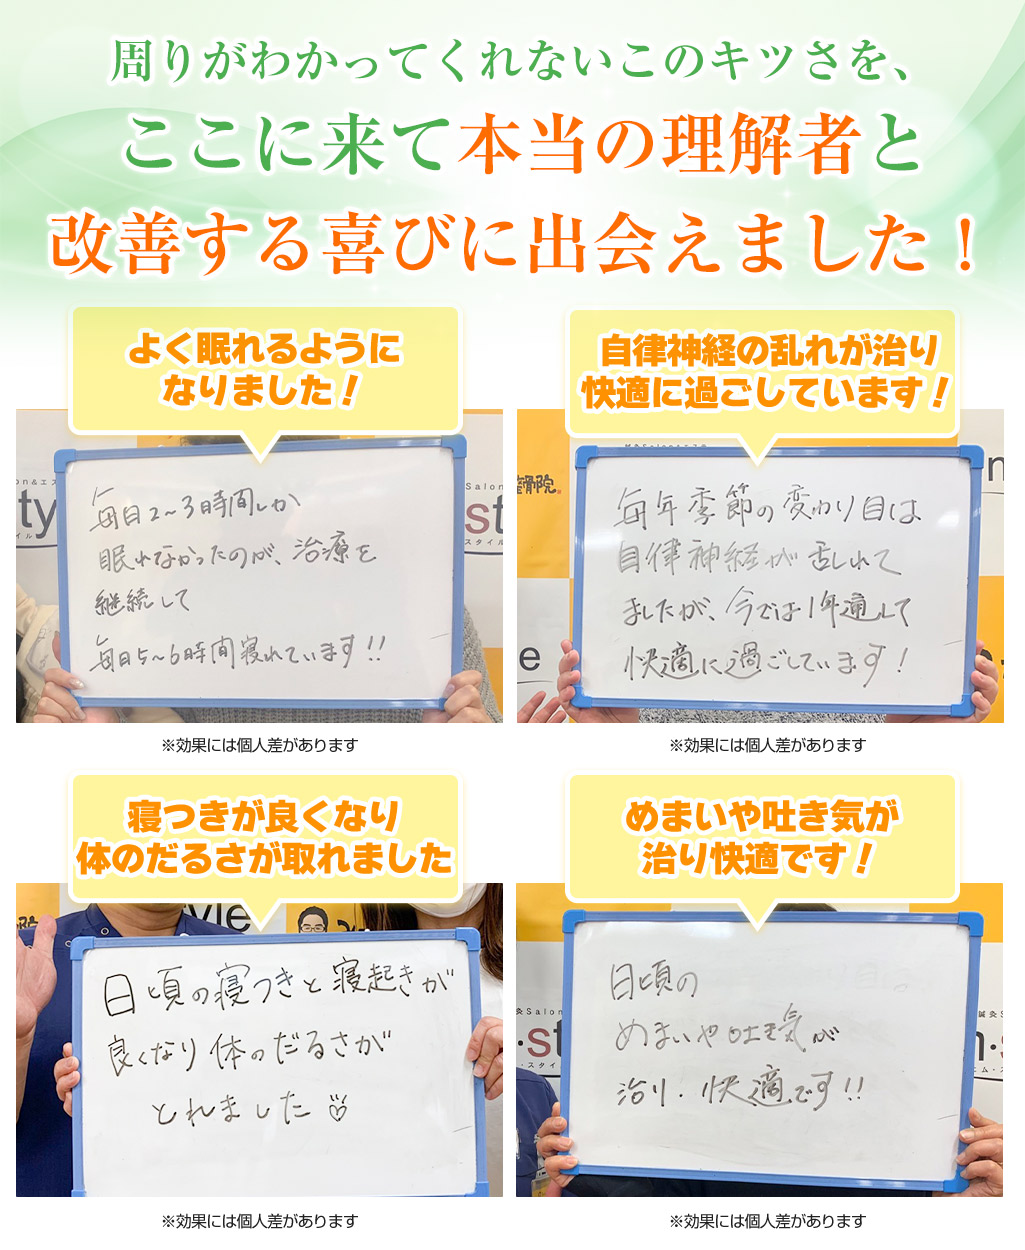 周りがわかってくれないこのキツさを、
ここに来て本当の理解者と
改善する喜びに出会えました！
よく眠れるように
なりました！
毎日2〜3時間しか
眠れなかったのが、治療を
継続して
毎日5〜6時間寝れています!!
※効果には個人差があります
自律神経の乱れが治り
快適に過ごしています！
整骨院
毎年季節の変わり目は
自律神経が乱れて
ましたが、今では1年通して
快適に過ごしています！
※効果には個人差があります
寝つきが良くなり
体のだるさが取れました
style
日頃の寝つきと寝起きが
良くなり体のだるさが
とれました♡
※効果には個人差があります
めまいや吐き気が
治り快適です！
日頃の
めまいや吐き気が
治り・快適です!!
※効果には個人差があります